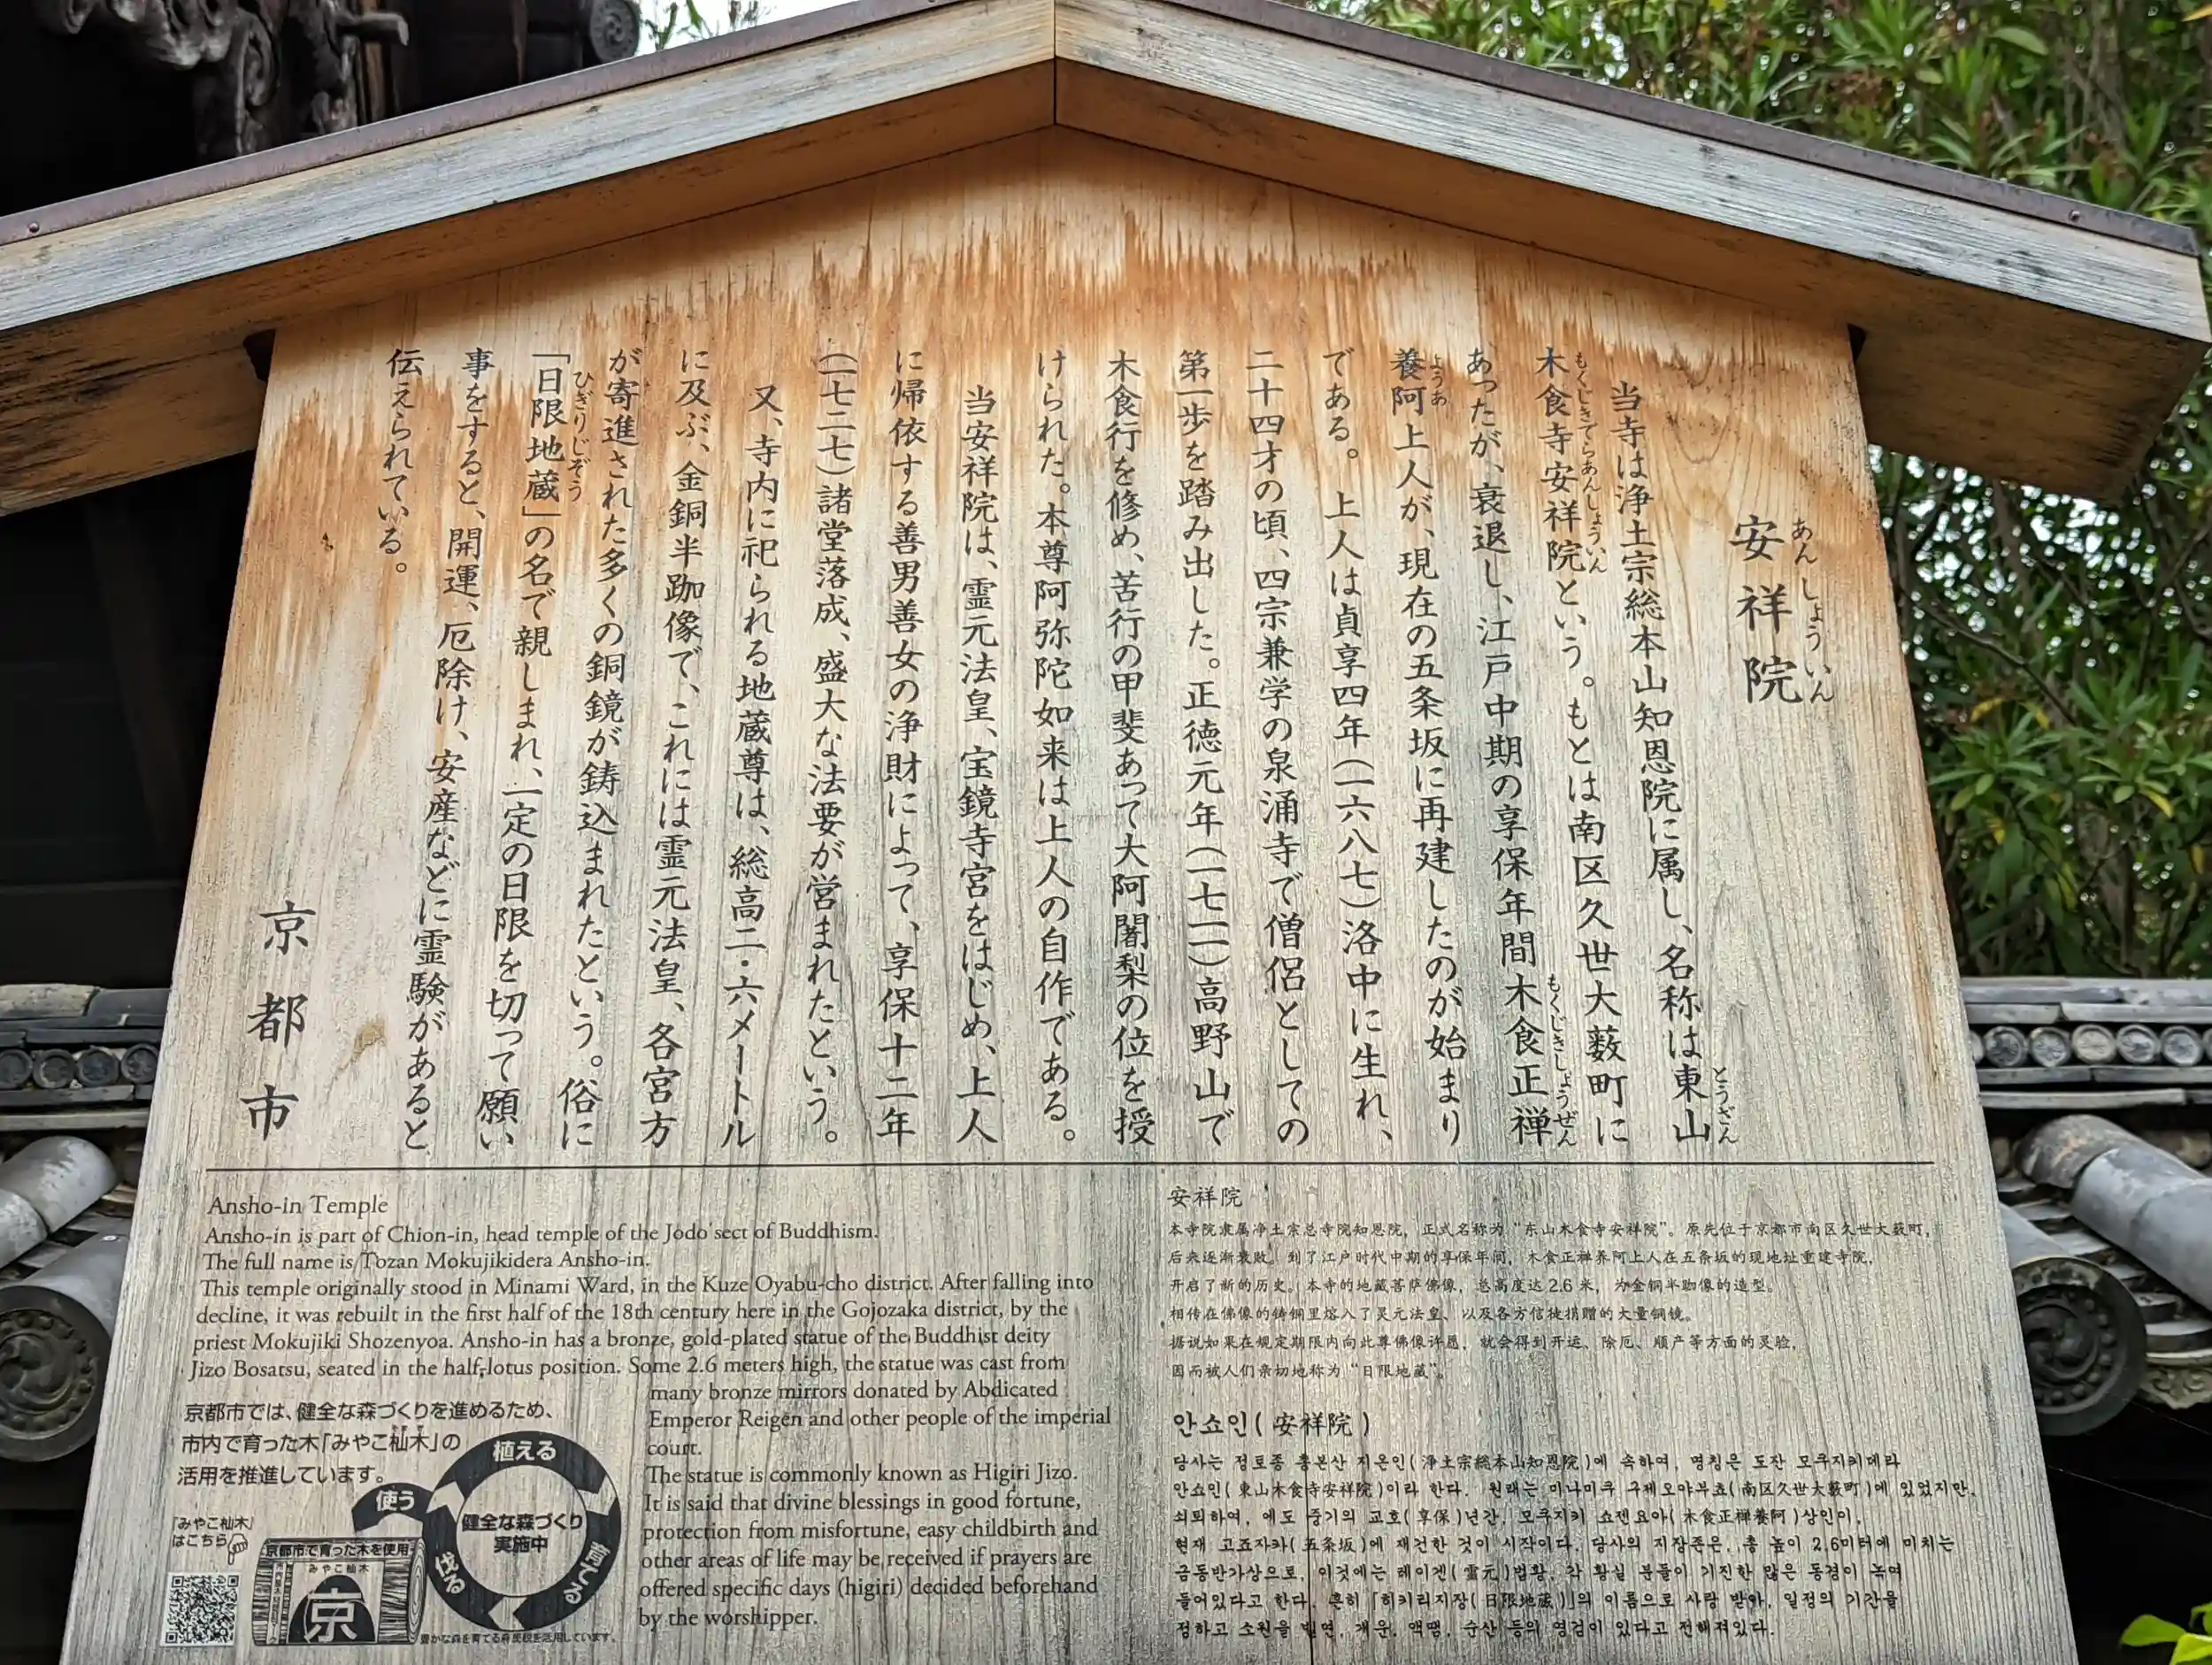 安祥院
あんしょういん
当寺は浄土宗総本山知恩院に属し、名称は東山
とうざん
木食寺安祥院という。もとは南区久世大薮町に
もくじきでらあんしょういん
あったが、衰退し、江戸中期の享保年間木食正禅
もくじきしょうぜん
養阿上人が、現在の五条坂に再建したのが始まり
ようあ
である。上人は貞享四年(一六八七)洛中に生れ、
二十四才の頃、四宗兼学の泉涌寺で僧侶としての
第一歩を踏み出した。正徳元年(一七一一)高野山で
木食行を修め、苦行の甲斐あって大阿闍梨の位を授
けられた。本尊阿弥陀如来は上人の自作である。
当安祥院は、霊元法皇、宝鏡寺宮をはじめ、上人
に帰依する善男善女の浄財によって、享保十二年
(一七二七)諸堂落成、盛大な法要が営まれたという。
又、寺内に祀られる地蔵尊は、総高二・六メートル
に及ぶ、金銅半跏像で、これには霊元法皇、各宮方
が寄進された多くの銅鏡が鋳込まれたという。俗に
「日限地蔵」の名で親しまれ、一定の日限を切って願い
ひぎりじぞう
事をすると、開運、厄除け、安産などに霊験があると
伝えられている。
京都市
Ansho-in Temple
Ansho-in is part of Chion-in, head temple of the Jodo sect of Buddhism.
The full name is Tozan Mokujikidera Ansho-in.
This temple originally stood in Minami Ward, in the Kuze Oyabu-cho district. After falling into
decline, it was rebuilt in the first half of the 18th century here in the Gojozaka district, by the
priest Mokujiki Shozenyoa. Ansho-in has a bronze, gold-plated statue of the Buddhist deity
Jizo Bosatsu, seated in the half-lotus position. Some 2.6 meters high, the statue was cast from
many bronze mirrors donated by Abdicated
Emperor Reigen and other people of the imperial
court.
The statue is commonly known as Higiri Jizo.
It is said that divine blessings in good fortune,
protection from misfortune, easy childbirth and
other areas of life may be received if prayers are
offered specific days (higiri) decided beforehand
by the worshipper.
安祥院
本寺院隶属净土宗总寺院知恩院，正式名称为“东山木食寺安祥院”。原先位于京都市南区久世大薮町，
后来逐渐衰败。到了江户时代中期的享保年间，木食正禅养阿上人在五条坂的现地址重建寺院，
开启了新的历史。本寺的地藏菩萨佛像，总高度达2.6米，为金铜半跏像的造型。
相传在佛像的铸铜里熔入了灵元法皇、以及各方信徒捐赠的大量铜镜。
据说如果在规定期限内向此尊佛像许愿，就会得到开运、除厄、顺产等方面的灵验，
因而被人们亲切地称为“日限地藏”。
안쇼인(安祥院)
당사는 정토종 총본산 지온인(浄土宗総本山知恩院)에 속하여, 명칭은 도잔 모쿠지키데라
안쇼인(東山木食寺安祥院)이라 한다. 원래는 미나미쿠 구제오야부쵸(南区久世大薮町)에 있었지만,
쇠퇴하여, 에도 중기의 교호(享保)년간, 모쿠지키 쇼젠요아(木食正禅養阿)상인이,
현재 고죠자카(五条坂)에 재건한 것이 시작이다. 당사의 지장존은, 총 높이 2.6미터에 미치는
금동반가상으로, 이것에는 레이겐(霊元)법황, 각 황실 분들이 기진한 많은 동경이 녹여
들어있다고 한다. 흔히 「히키리지장(日限地蔵)」의 이름으로 사랑 받아, 일정의 기간을
정하고 소원을 빌면, 개운, 액땜, 순산 등의 영검이 있다고 전해져있다.
京都市では、健全な森づくりを進めるため、
市内で育った木「みやこ杣木」の
活用を推進しています。
「みやこ杣木」
はこちら
京都市で育った木を使用
みやこ杣木
京
使う
植える
育てる
伐る
健全な森づくり
実施中
豊かな森を育てる府民税を活用しています。